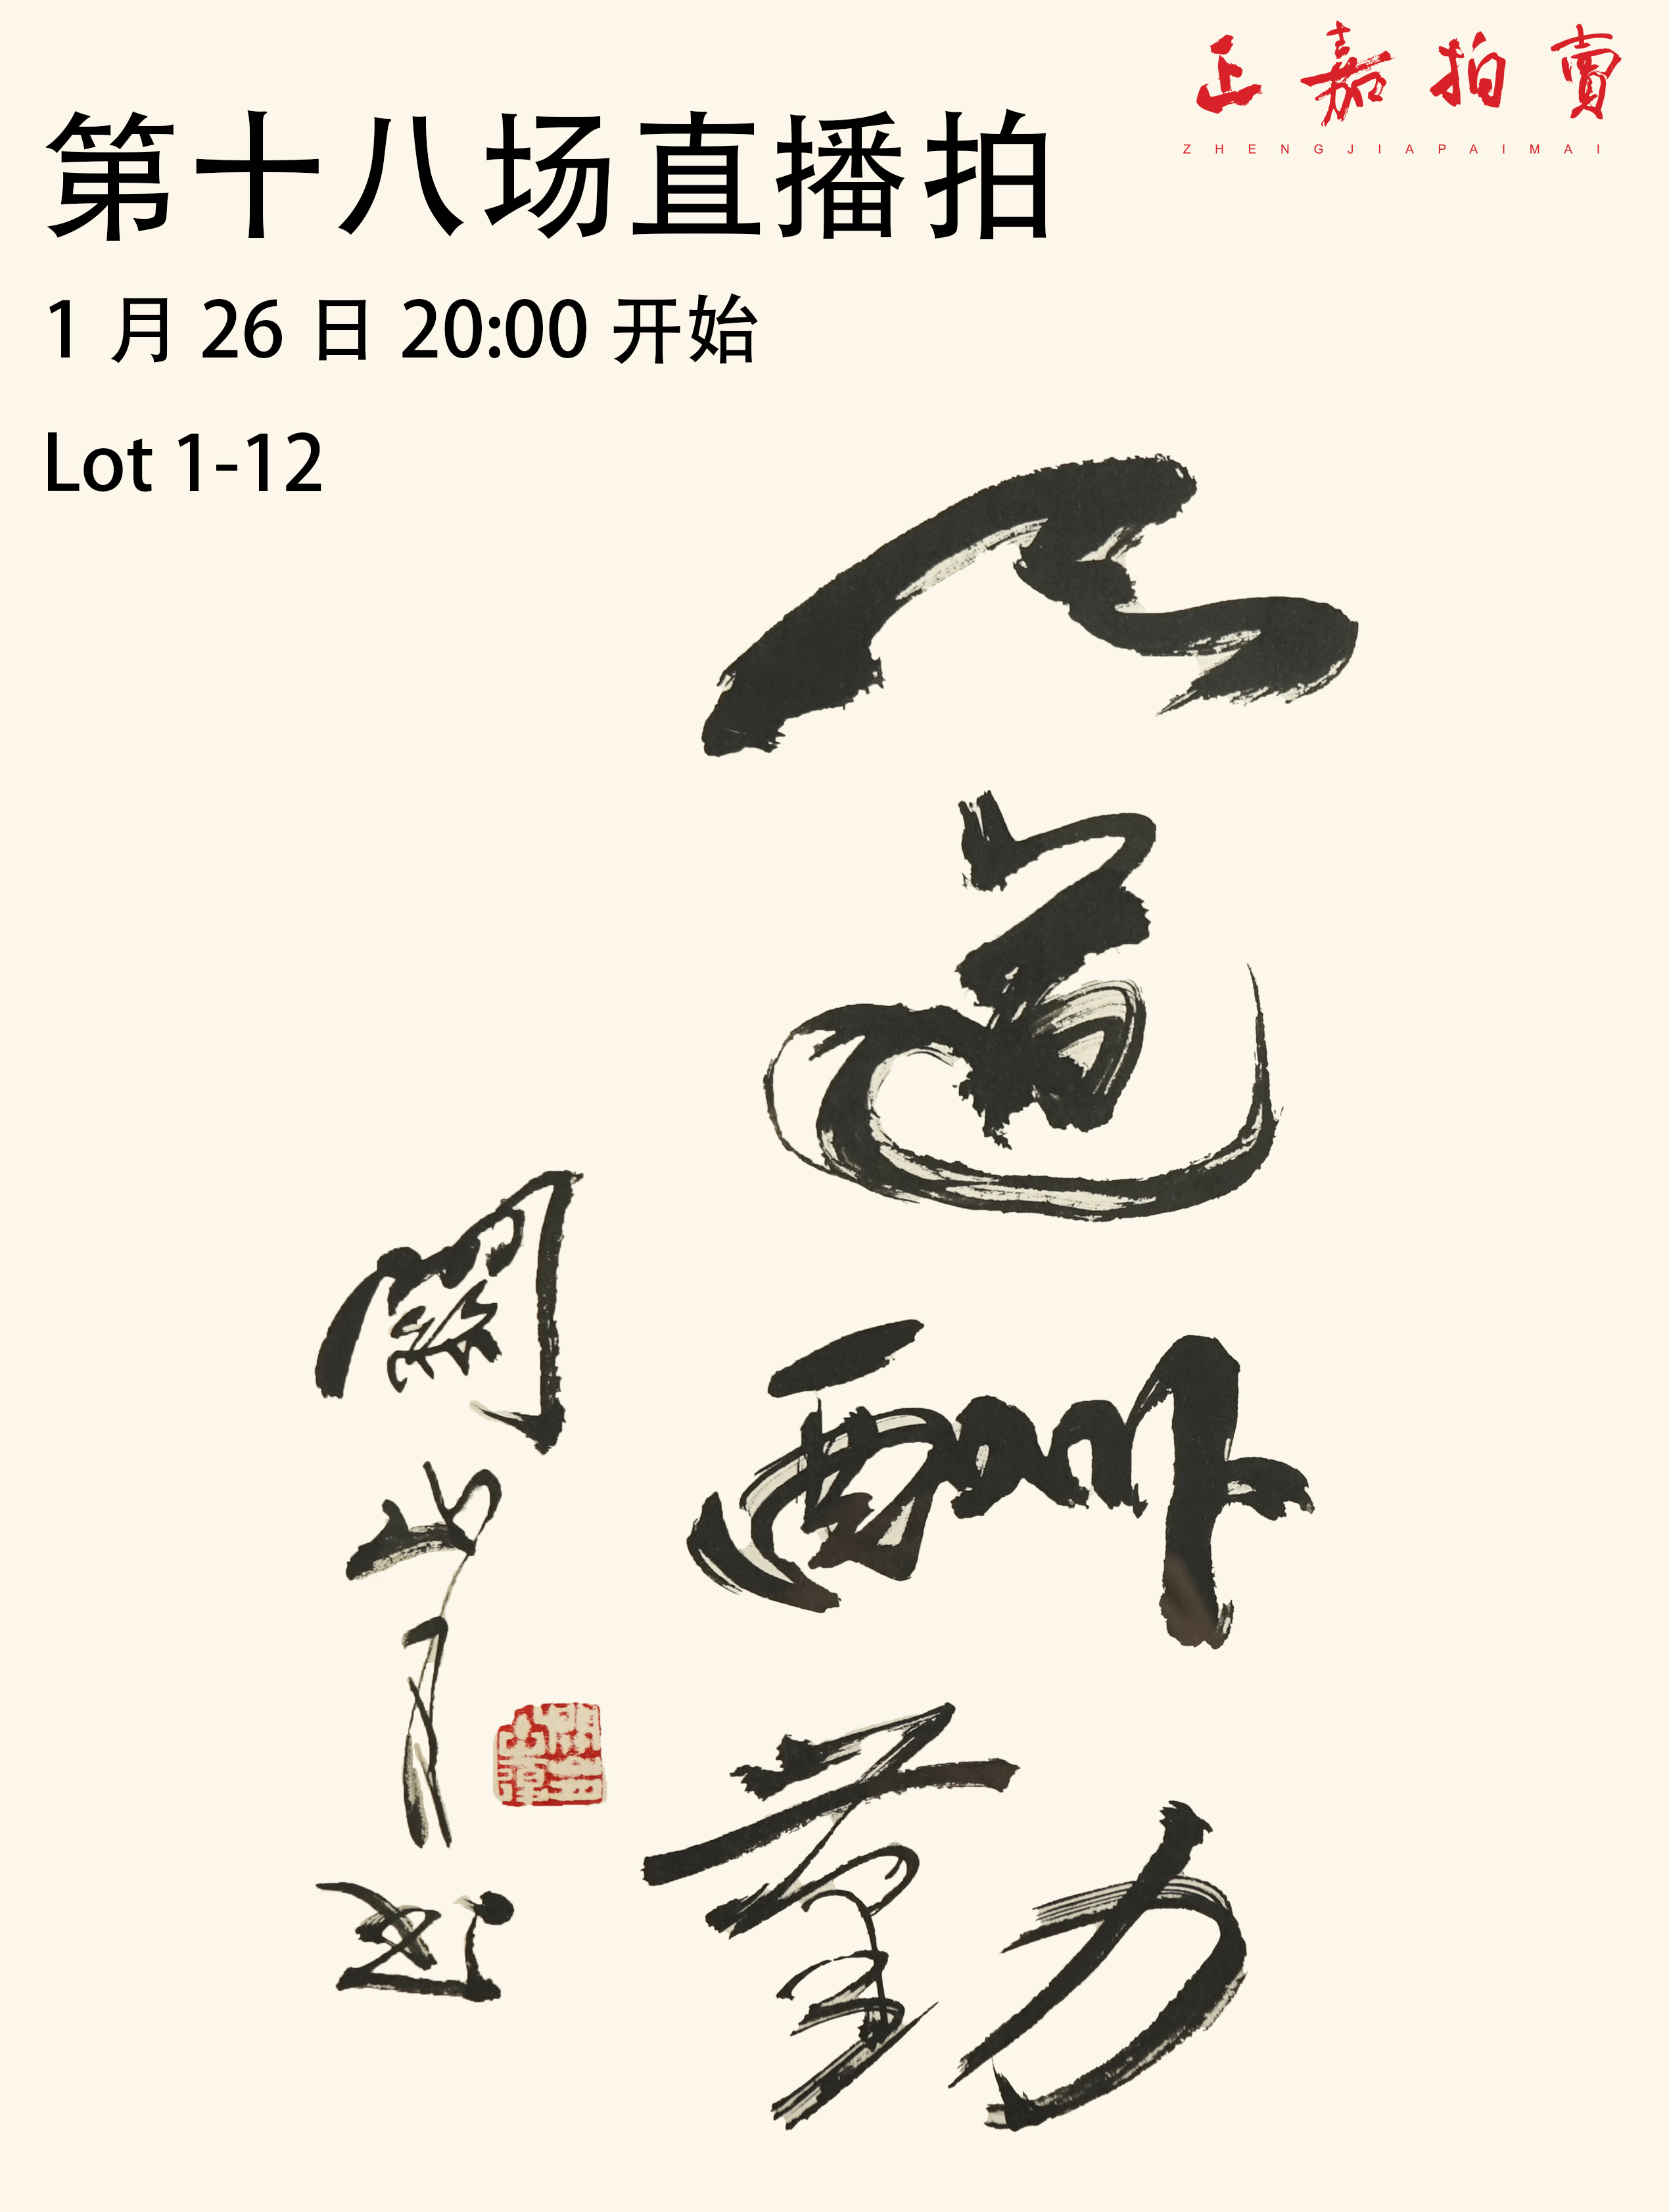 正嘉拍賣
ZHENGJIAPAIMAI
第十八场直播拍
1 月 26 日 20:00 开始
Lot 1-12
天道酬勤
關山月題